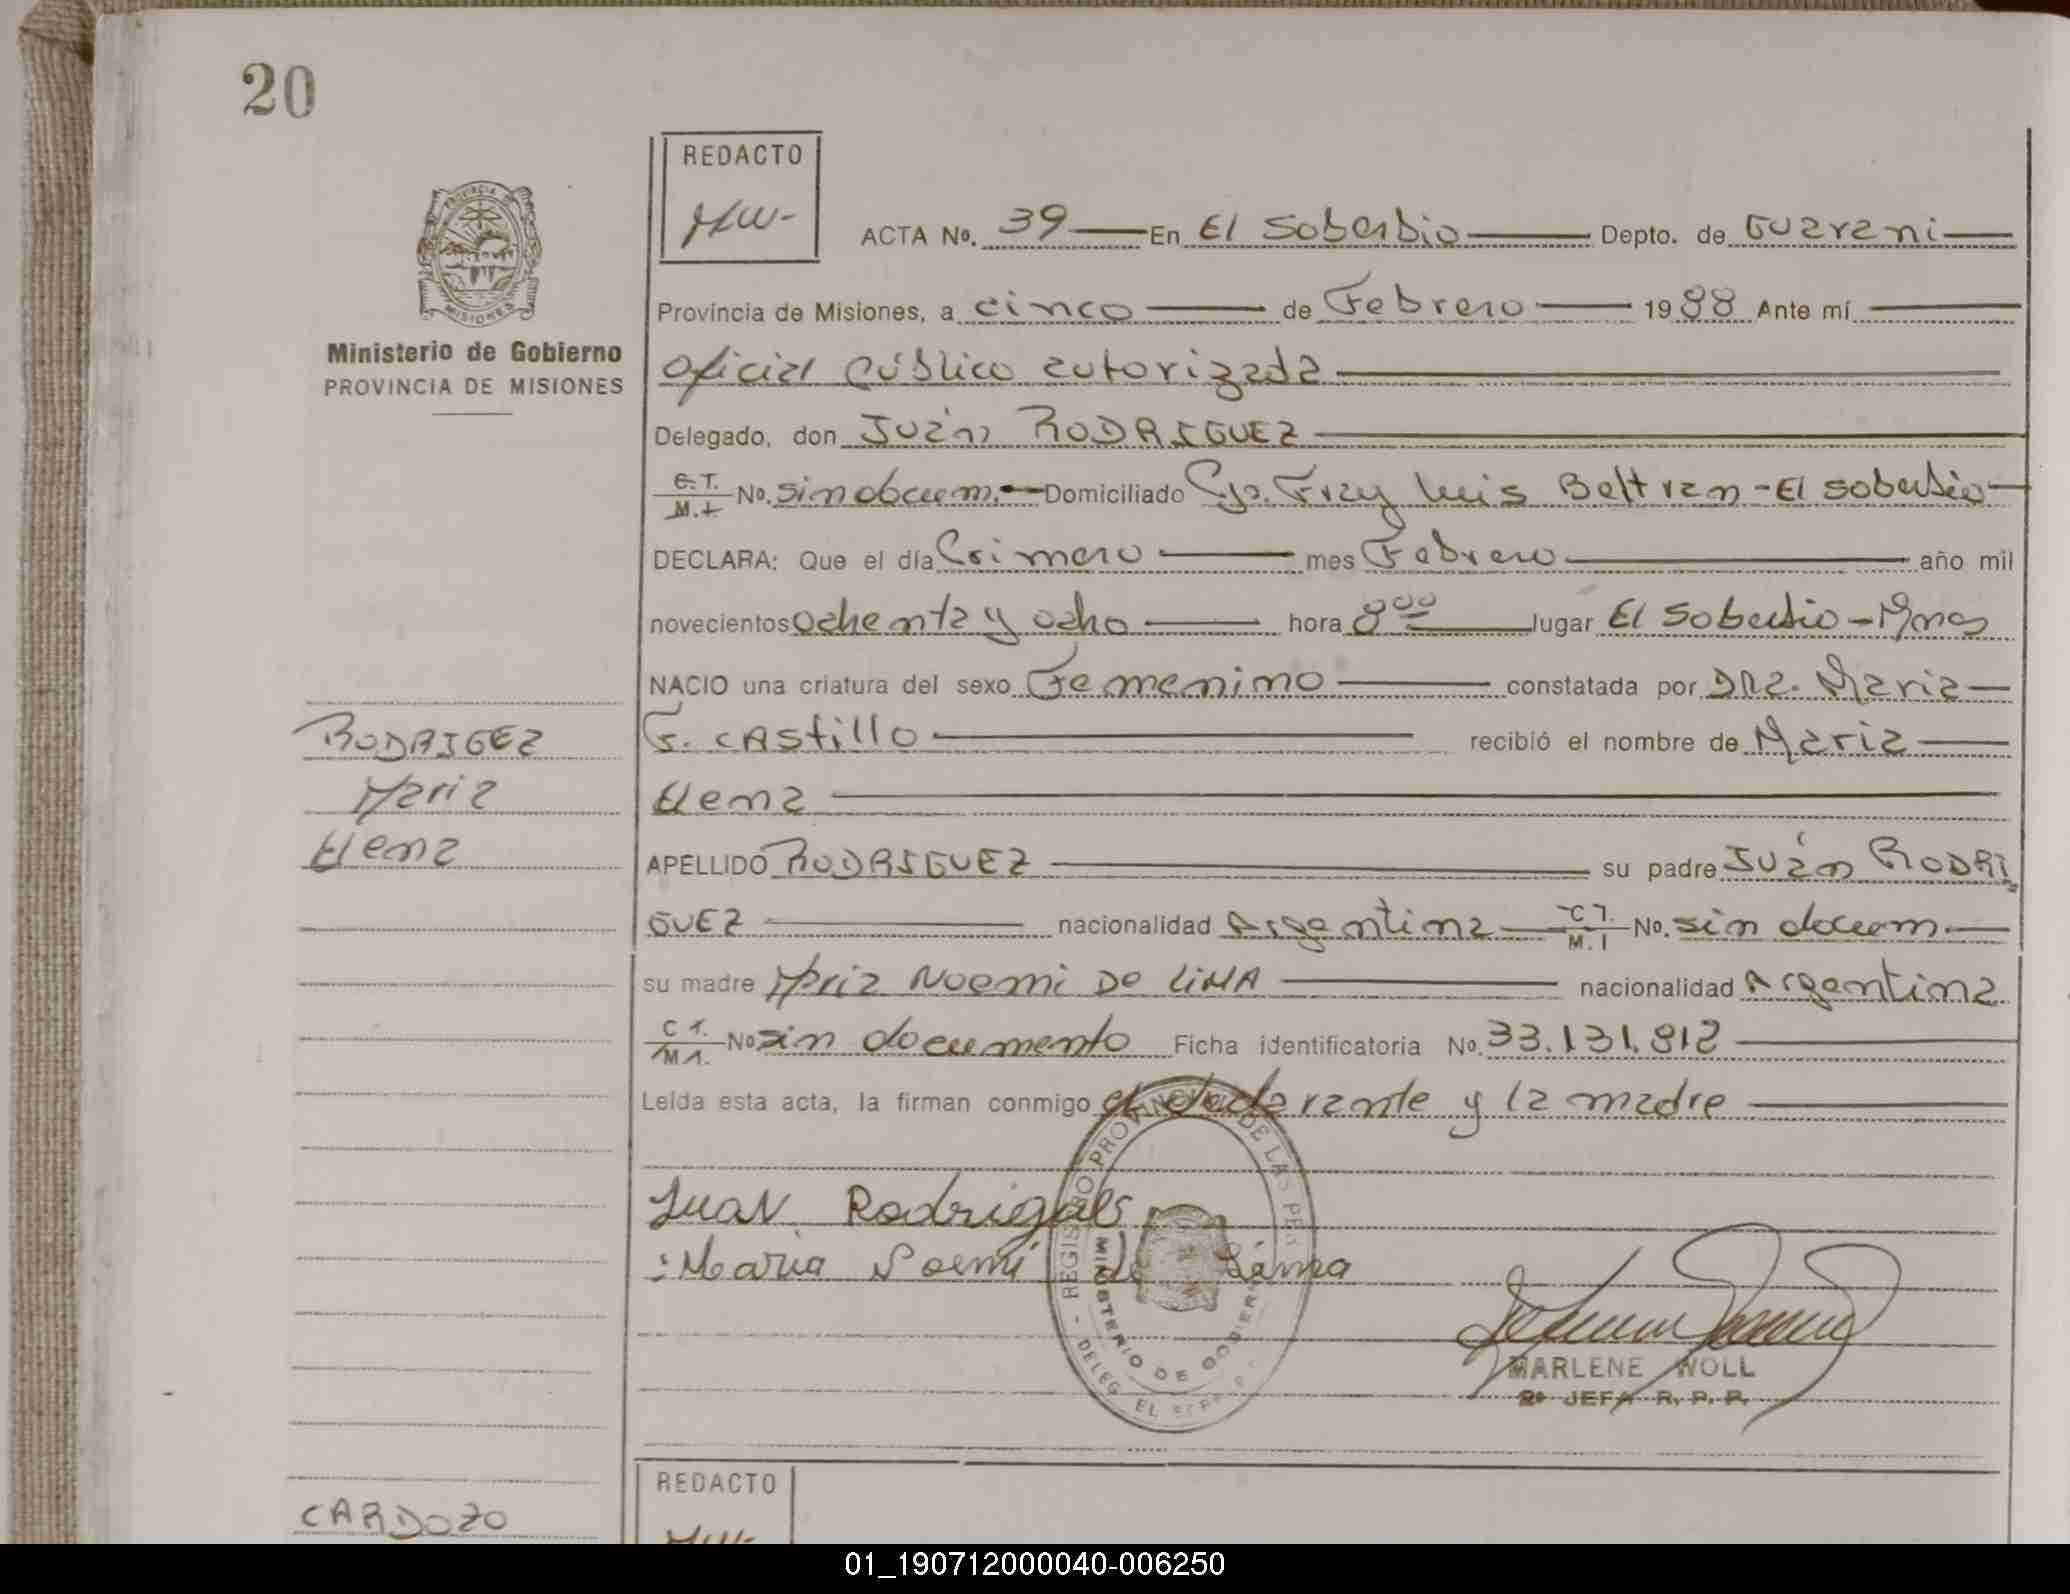 20
REDACTO
MW-
PROVINCIA DE
MISIONES
Ministerio de Gobierno
PROVINCIA DE MISIONES
ACTA No. 39 En El Soberbio Depto. de Guarani
Provincia de Misiones, a cinco de Febrero 1988 Ante mí
oficial Público autorizada
Delegado, don JUán RODRIGUEZ
C.I. M.I. No. sin docum. Domiciliado Pje. Fray Luis Beltran - El soberbio
DECLARA: Que el día Primero mes Febrero año mil
novecientos ochenta y ocho hora 8 00 lugar El Soberbio - Mnes
NACIO una criatura del sexo Femenino constatada por DRa. Maria
RODRIGEZ
F. CAStillo recibió el nombre de Maria
Maria
Elena
Elena
APELLIDO RODRIGUEZ su padre JUán RODRI
GUEZ nacionalidad Argentina C I. M. I No. sin docum.
su madre Mria Noemi De LiMA nacionalidad Argentina
C I. M I. No sin documento Ficha identificatoria No. 33.131.812
Leída esta acta, la firman conmigo el declarante y la madre
Juan Rodrigues
Maria Noemi de Lima
REGISTRO PROVINCIAL DE LAS PER
MINISTERIO DE GOBIERNO
DELEG. EL
MARLENE WOLL
2ª JEFA R. P. P.
REDACTO
MW-
CARDOZO
01_190712000040-006250